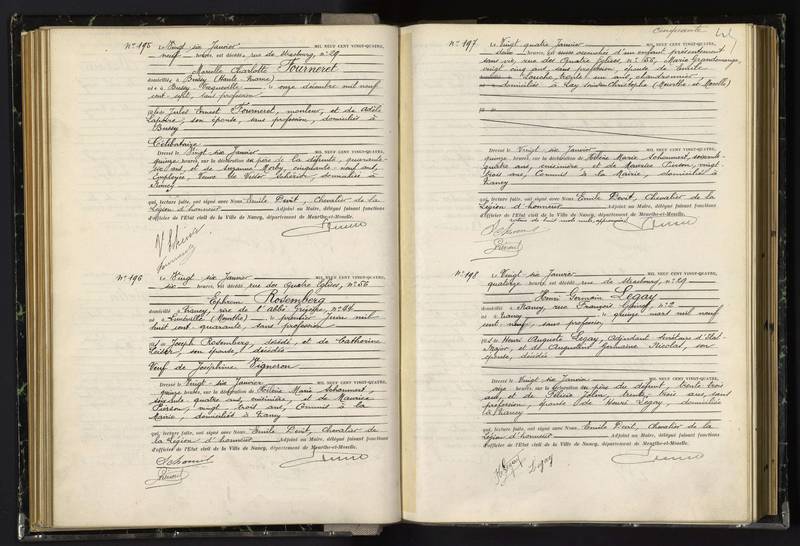 N° 195 Le Vingt six Janvier MIL NEUF CENT VINGT-QUATRE,
neuf heures, est décédée, rue de Strasbourg, n° 29
Marcelle Charlotte Fourneret
domiciliée à Bussy (Haute Marne)
née à Bussy Vecqueville le onze décembre mil neuf
cent sept, sans profession
fille de Jules Ernest Fourneret, mouleur, et de Adèle
son épouse, sans profession, domiciliés à
Bussy
Célibataire
Dressé le Vingt six Janvier MIL NEUF CENT VINGT-QUATRE,
quinze heures, sur la déclaration de père de la défunte, quarante
six ans, et de Suzanne cinquante neuf ans,
Employée, Veuve de Victor domiciliée à
Nancy
qui, lecture faite, ont signé avec Nous Emile Devit, Chevalier de la
Légion d'honneur Adjoint au Maire, délégué faisant fonctions
d'officier de l'Etat civil de la Ville de Nancy, département de Meurthe-et-Moselle.
Fourneret
N° 196 Le Vingt six Janvier MIL NEUF CENT VINGT-QUATRE,
six heures, est décédé rue des Quatre Eglises, n° 56
Ephrem Rosemberg
domicilié à Nancy, rue de l'Abbé Grégoire, n°
né à Lunéville (Meurthe) le premier Juin mil
huit cent quarante, sans profession
fils de Joseph Rosemberg, décédé, et de Catherine
son épouse, décédée
Veuf de Joséphine Vigneron
Dressé le Vingt six Janvier MIL NEUF CENT VINGT-QUATRE,
quinze heures, sur la déclaration de Hélène Marie Schaumert,
soixante quatre ans, cuisinière, et de Maurice
Pierson, vingt trois ans, Commis à la
Mairie, domiciliés à Nancy
qui, lecture faite, ont signé avec Nous Emile Devit, Chevalier de
la Légion d'honneur Adjoint au Maire, délégué faisant fonctions
d'officier de l'Etat civil de la Ville de Nancy, département de Meurthe-et-Moselle.
cinquante
N° 197 Le Vingt quatre Janvier MIL NEUF CENT VINGT-QUATRE,
deux heures, est accouchée d'un enfant présentement
sans vie, rue des Quatre Eglises n° 56, Marie
vingt cinq ans, sans profession, épouse de Emile
trente un ans, chaudronnier,
domiciliés à Lay Saint Christophe (Meurthe et Moselle)
Dressé le Vingt six Janvier MIL NEUF CENT VINGT-QUATRE,
quinze heures, sur la déclaration de Hélène Marie Schaumert, soixante
quatre ans, cuisinière, et de Maurice Pierson, vingt
trois ans, Commis à la Mairie, domiciliés à
Nancy
qui, lecture faite, ont signé avec Nous Emile Devit, Chevalier de la
Légion d'honneur Adjoint au Maire, délégué faisant fonctions
d'officier de l'Etat civil de la Ville de Nancy, département de Meurthe-et-Moselle.
N° 198 Le Vingt six Janvier MIL NEUF CENT VINGT-QUATRE,
quatorze heures, est décédé rue de Strasbourg, n° 29
Henri Germain Legay
domicilié à Nancy, rue François n° 2
né à Nancy le quinze mars mil neuf
cent neuf, sans profession,
fils de Henri Auguste Legay, adjudant secrétaire d'Etat
Major, et de Augustine Germaine Nicolas, son
épouse, décédée
Dressé le Vingt six Janvier MIL NEUF CENT VINGT-QUATRE,
seize heures, sur la déclaration de père du défunt, trente trois
ans, et de Félicie trente trois ans, sans
profession, épouse de Henri Legay, domiciliés
à Nancy
qui, lecture faite, ont signé avec Nous Emile Devit, Chevalier de la
Légion d'honneur Adjoint au Maire, délégué faisant fonctions
d'officier de l'Etat civil de la Ville de Nancy, département de Meurthe-et-Moselle.
Legay